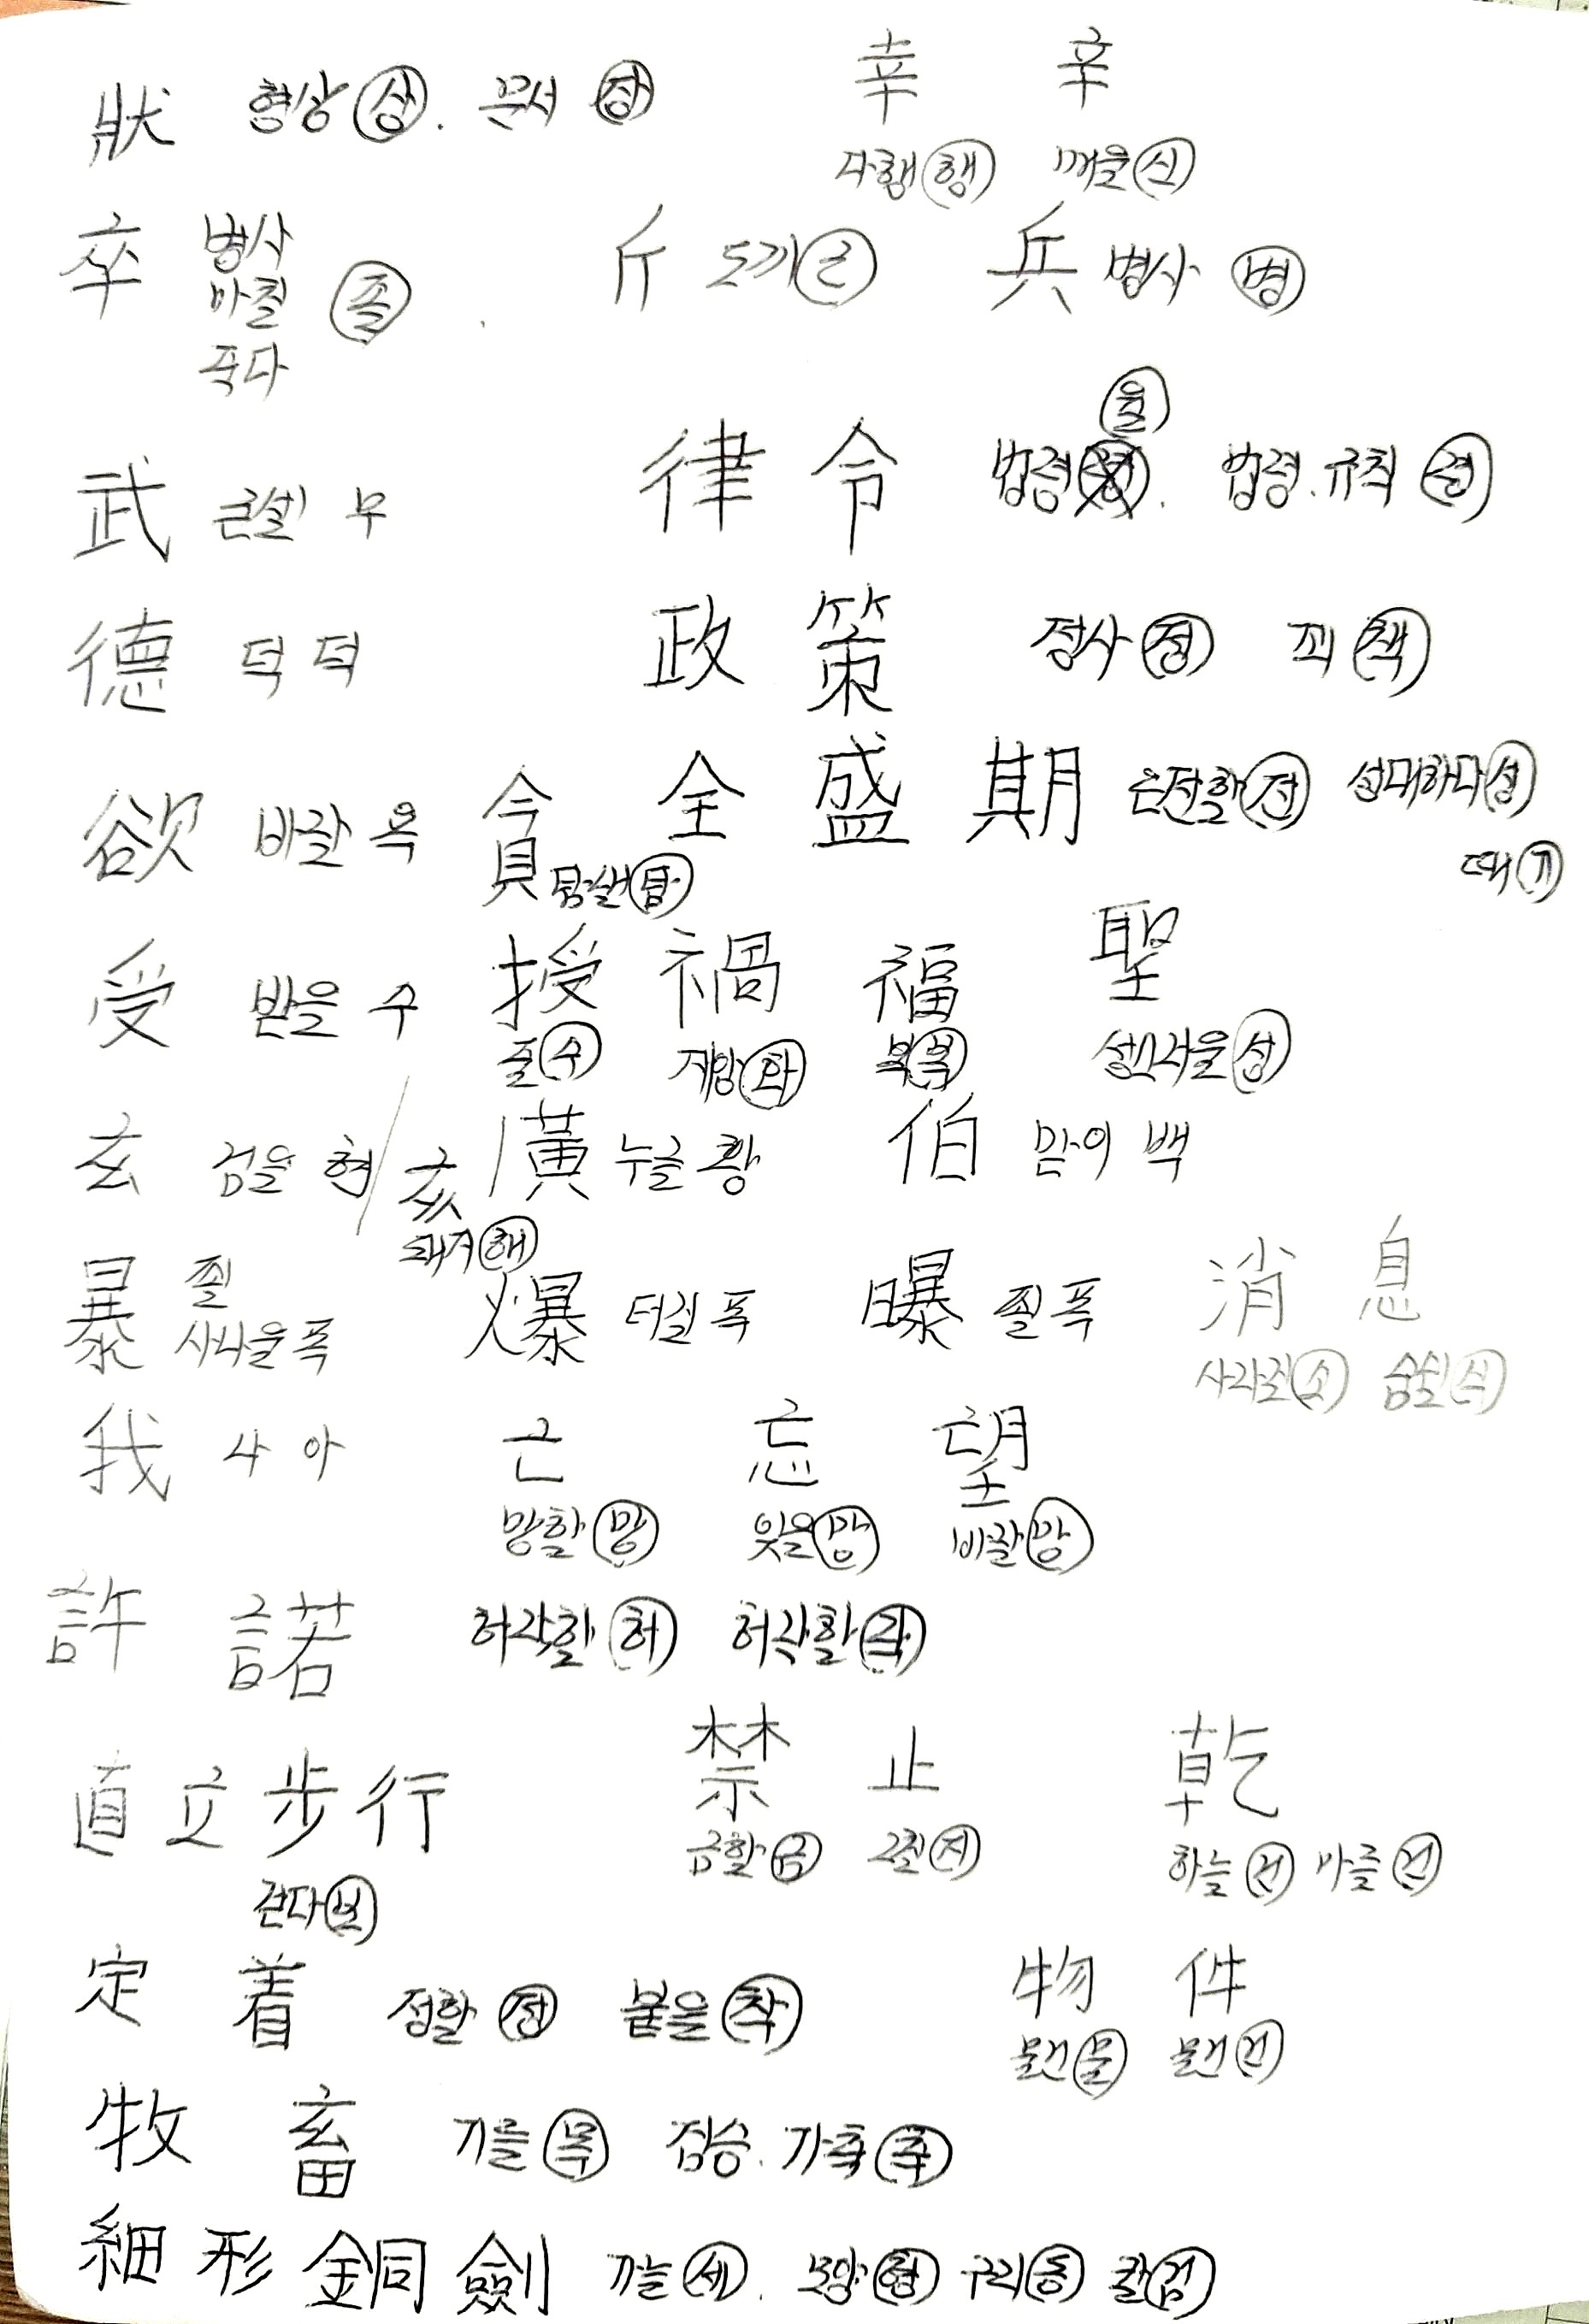 幸 辛
狀 형상 상. 문서 장
다행 행 매울 신
卒 병사 마칠 죽다 졸 斤 도끼 근 兵 병사 병
율
武 굳셀 무 律 令 법령. 법령.규칙 령
德 덕 덕 政 策 정사 정 꾀 책
欲 바랄 욕 貪 탐낼 탐 全 盛 期 온전할 전 성대하다 성
때 기
受 받을 수 授 禍 福 聖
줄 수 재앙 화 복 복 성스러울 성
玄 검을 현 / 亥 / 黃 누를 황 伯 맏이 백
돼지 해
暴 쬘 사나울 폭 爆 터질 폭 曝 쬘 폭 消 息
사라질 소 숨쉴 식
我 나 아 亡 忘 望
망할 망 잊을 망 바랄 망
許 諾 허락할 허 허락할 락
直 立 步 行 禁 止 乾
금할 금 그칠 지 하늘 건 마를 건
걷다 보
定 着 정할 정 붙을 착 物 件
물건 물 물건 건
牧 畜 기를 목 짐승. 가축 축
細 形 銅 劍 가늘 세. 모양 형 구리 동 칼 검